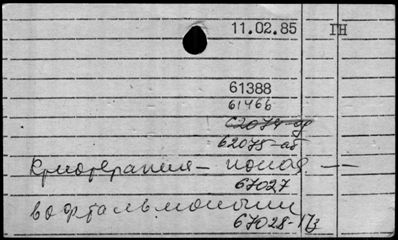 11.02.85 ГН
61388
61466
62074-
62075-аб
Криотерапия — ПОМОД —
67027
в офтальмологии
67028-173